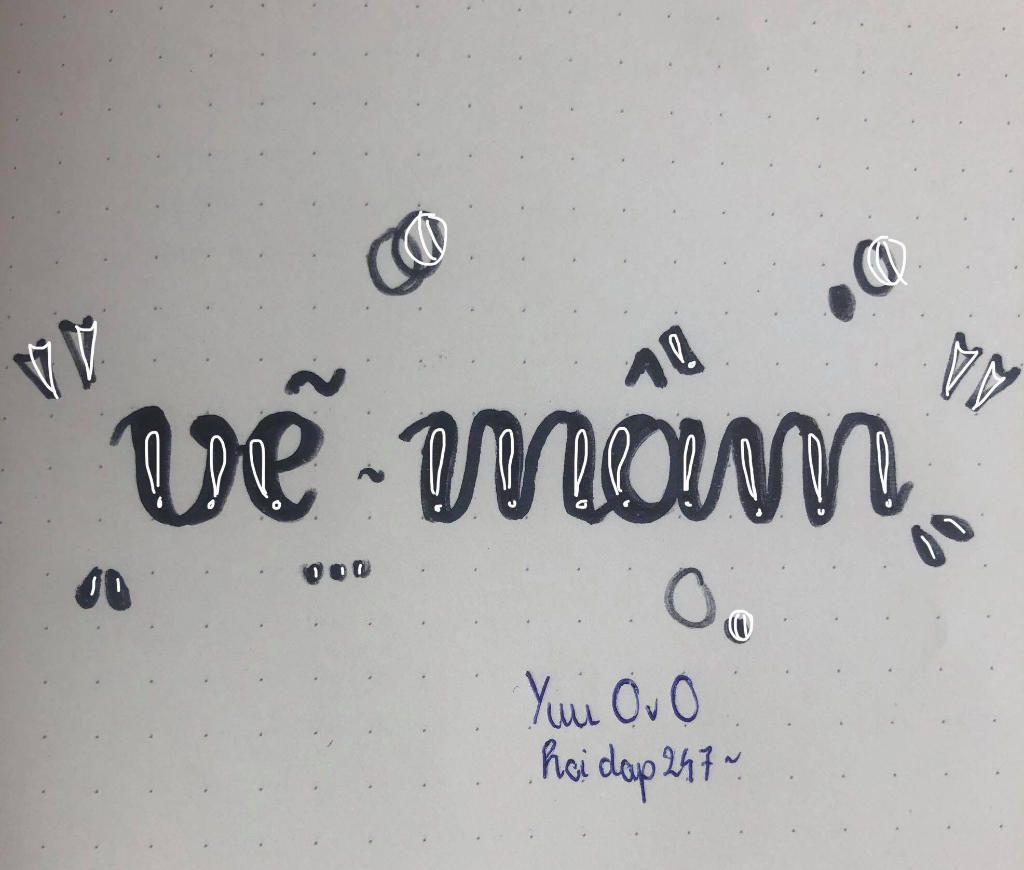 vẽ ~ mầm
...
Yuu OvO
hoi dap 247 ~